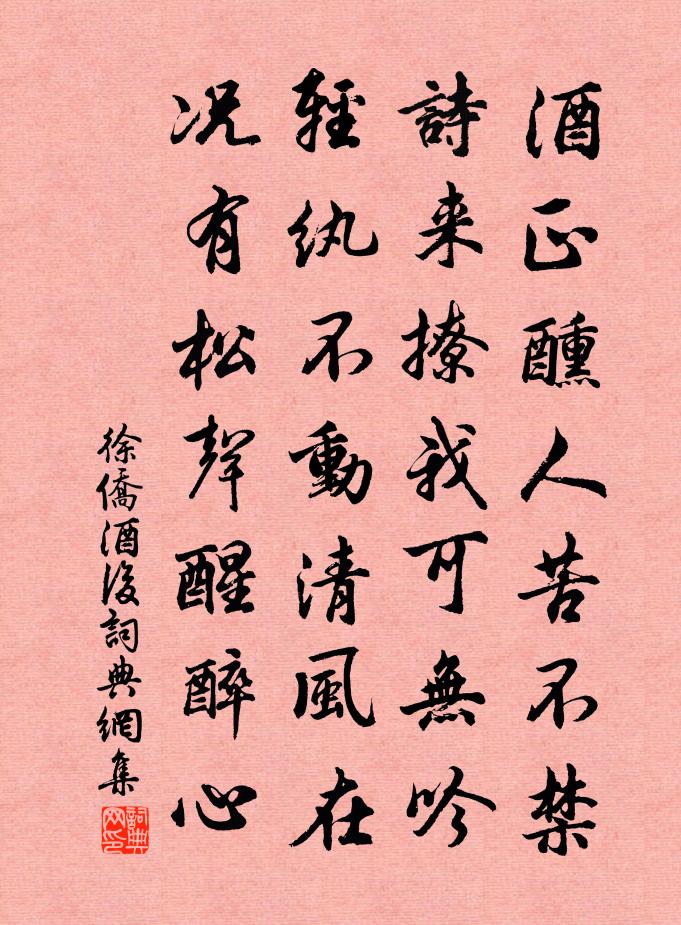 酒正醺人苦不禁
詩来撩我可無吟
輕紈不動清風在
况有松聲醒醉心
徐僑酒後詞典網集
詞典网印